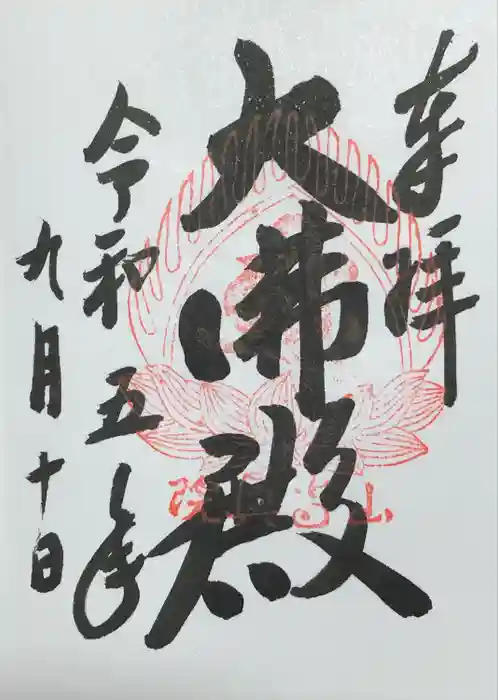 奉拝
大佛殿
令和五年
九月十日